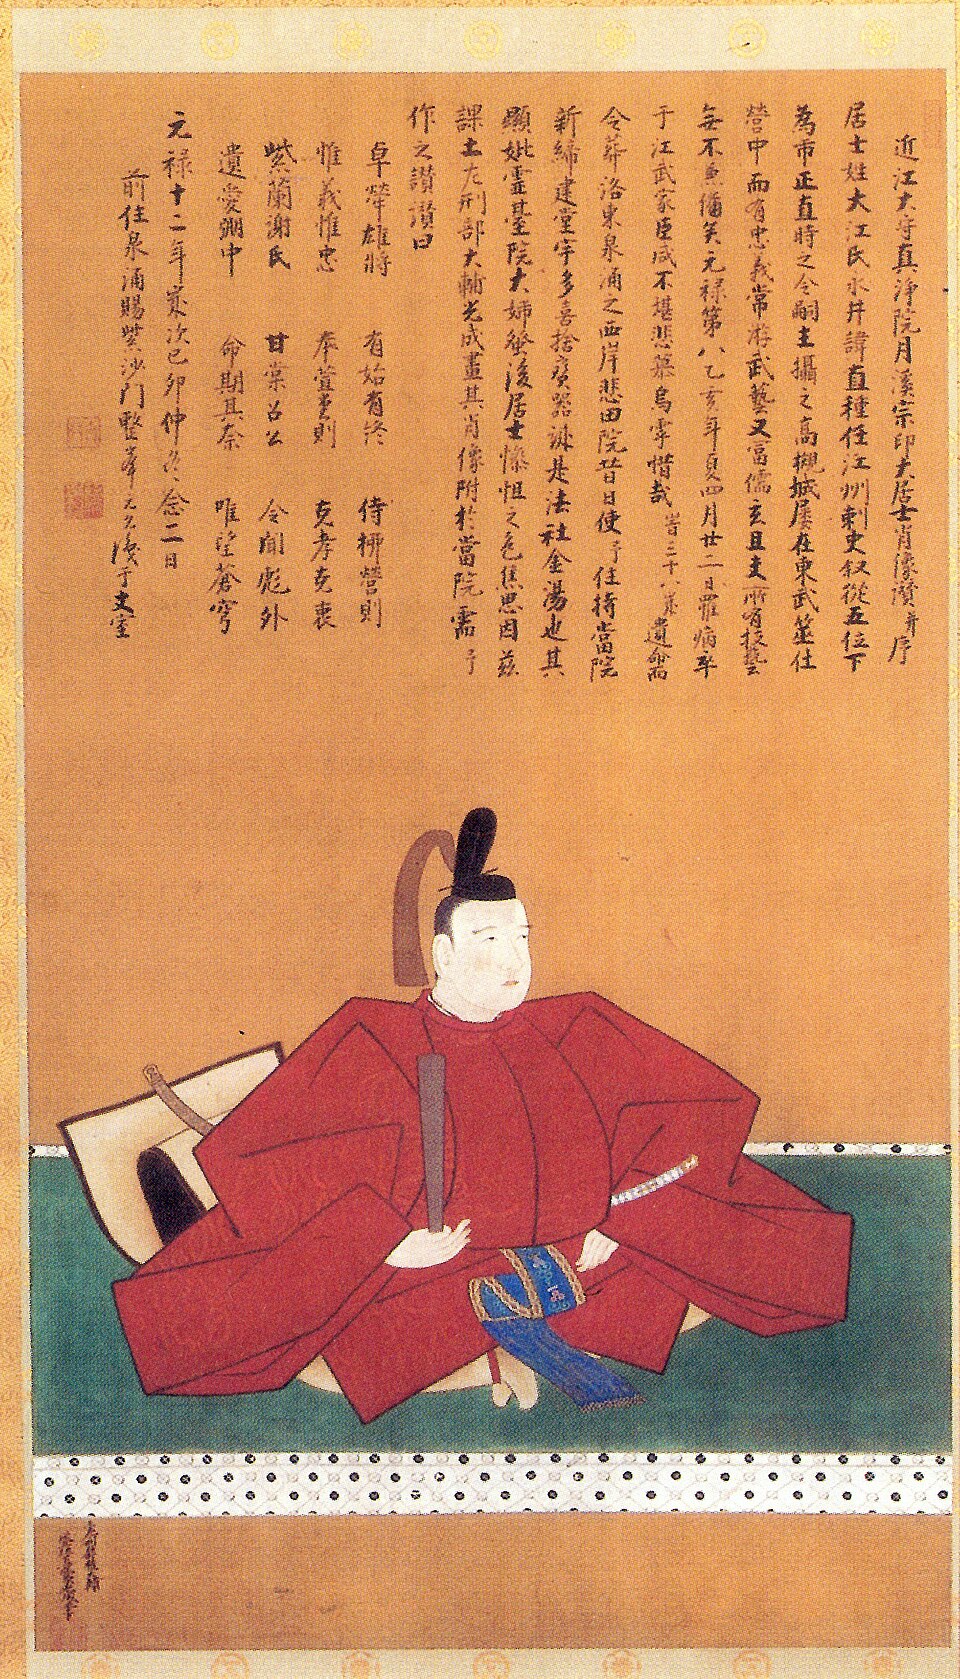 近江大守真淨院月溪宗印大居士肖像讚并序
居士姓大江氏永井諱直種任江州刺史叙從五位下
為市正直時之令嗣主攝之高槻城屢在東武筮仕
營中而有忠義常游武藝又富儒玄且主所有技藝
無不兼備矣元祿第八乙亥年夏四月廿二日罹病卒
于江武家臣咸不堪悲慕烏雩惜哉 遺命而
令葬洛東泉涌之西岸悲田院昔日使予住持當院
新締建堂宇多喜捨資器謝是法社金湯也其
顯妣靈臺院大姉後居士慘怛之色焦思因茲
課土左刑部大輔光成畫其肖像附於當院需予
作之讚讚曰
卓犖雄將 有始有終 侍柳營則
惟義惟忠 奉萱則 克孝克衷
紫蘭謝氏 甘棠召公 令聞彪外
遺愛弸中 命期其奈 唯望蒼穹
元祿十二年歲次己卯仲冬念二日
前住泉涌賜紫沙門 于丈室